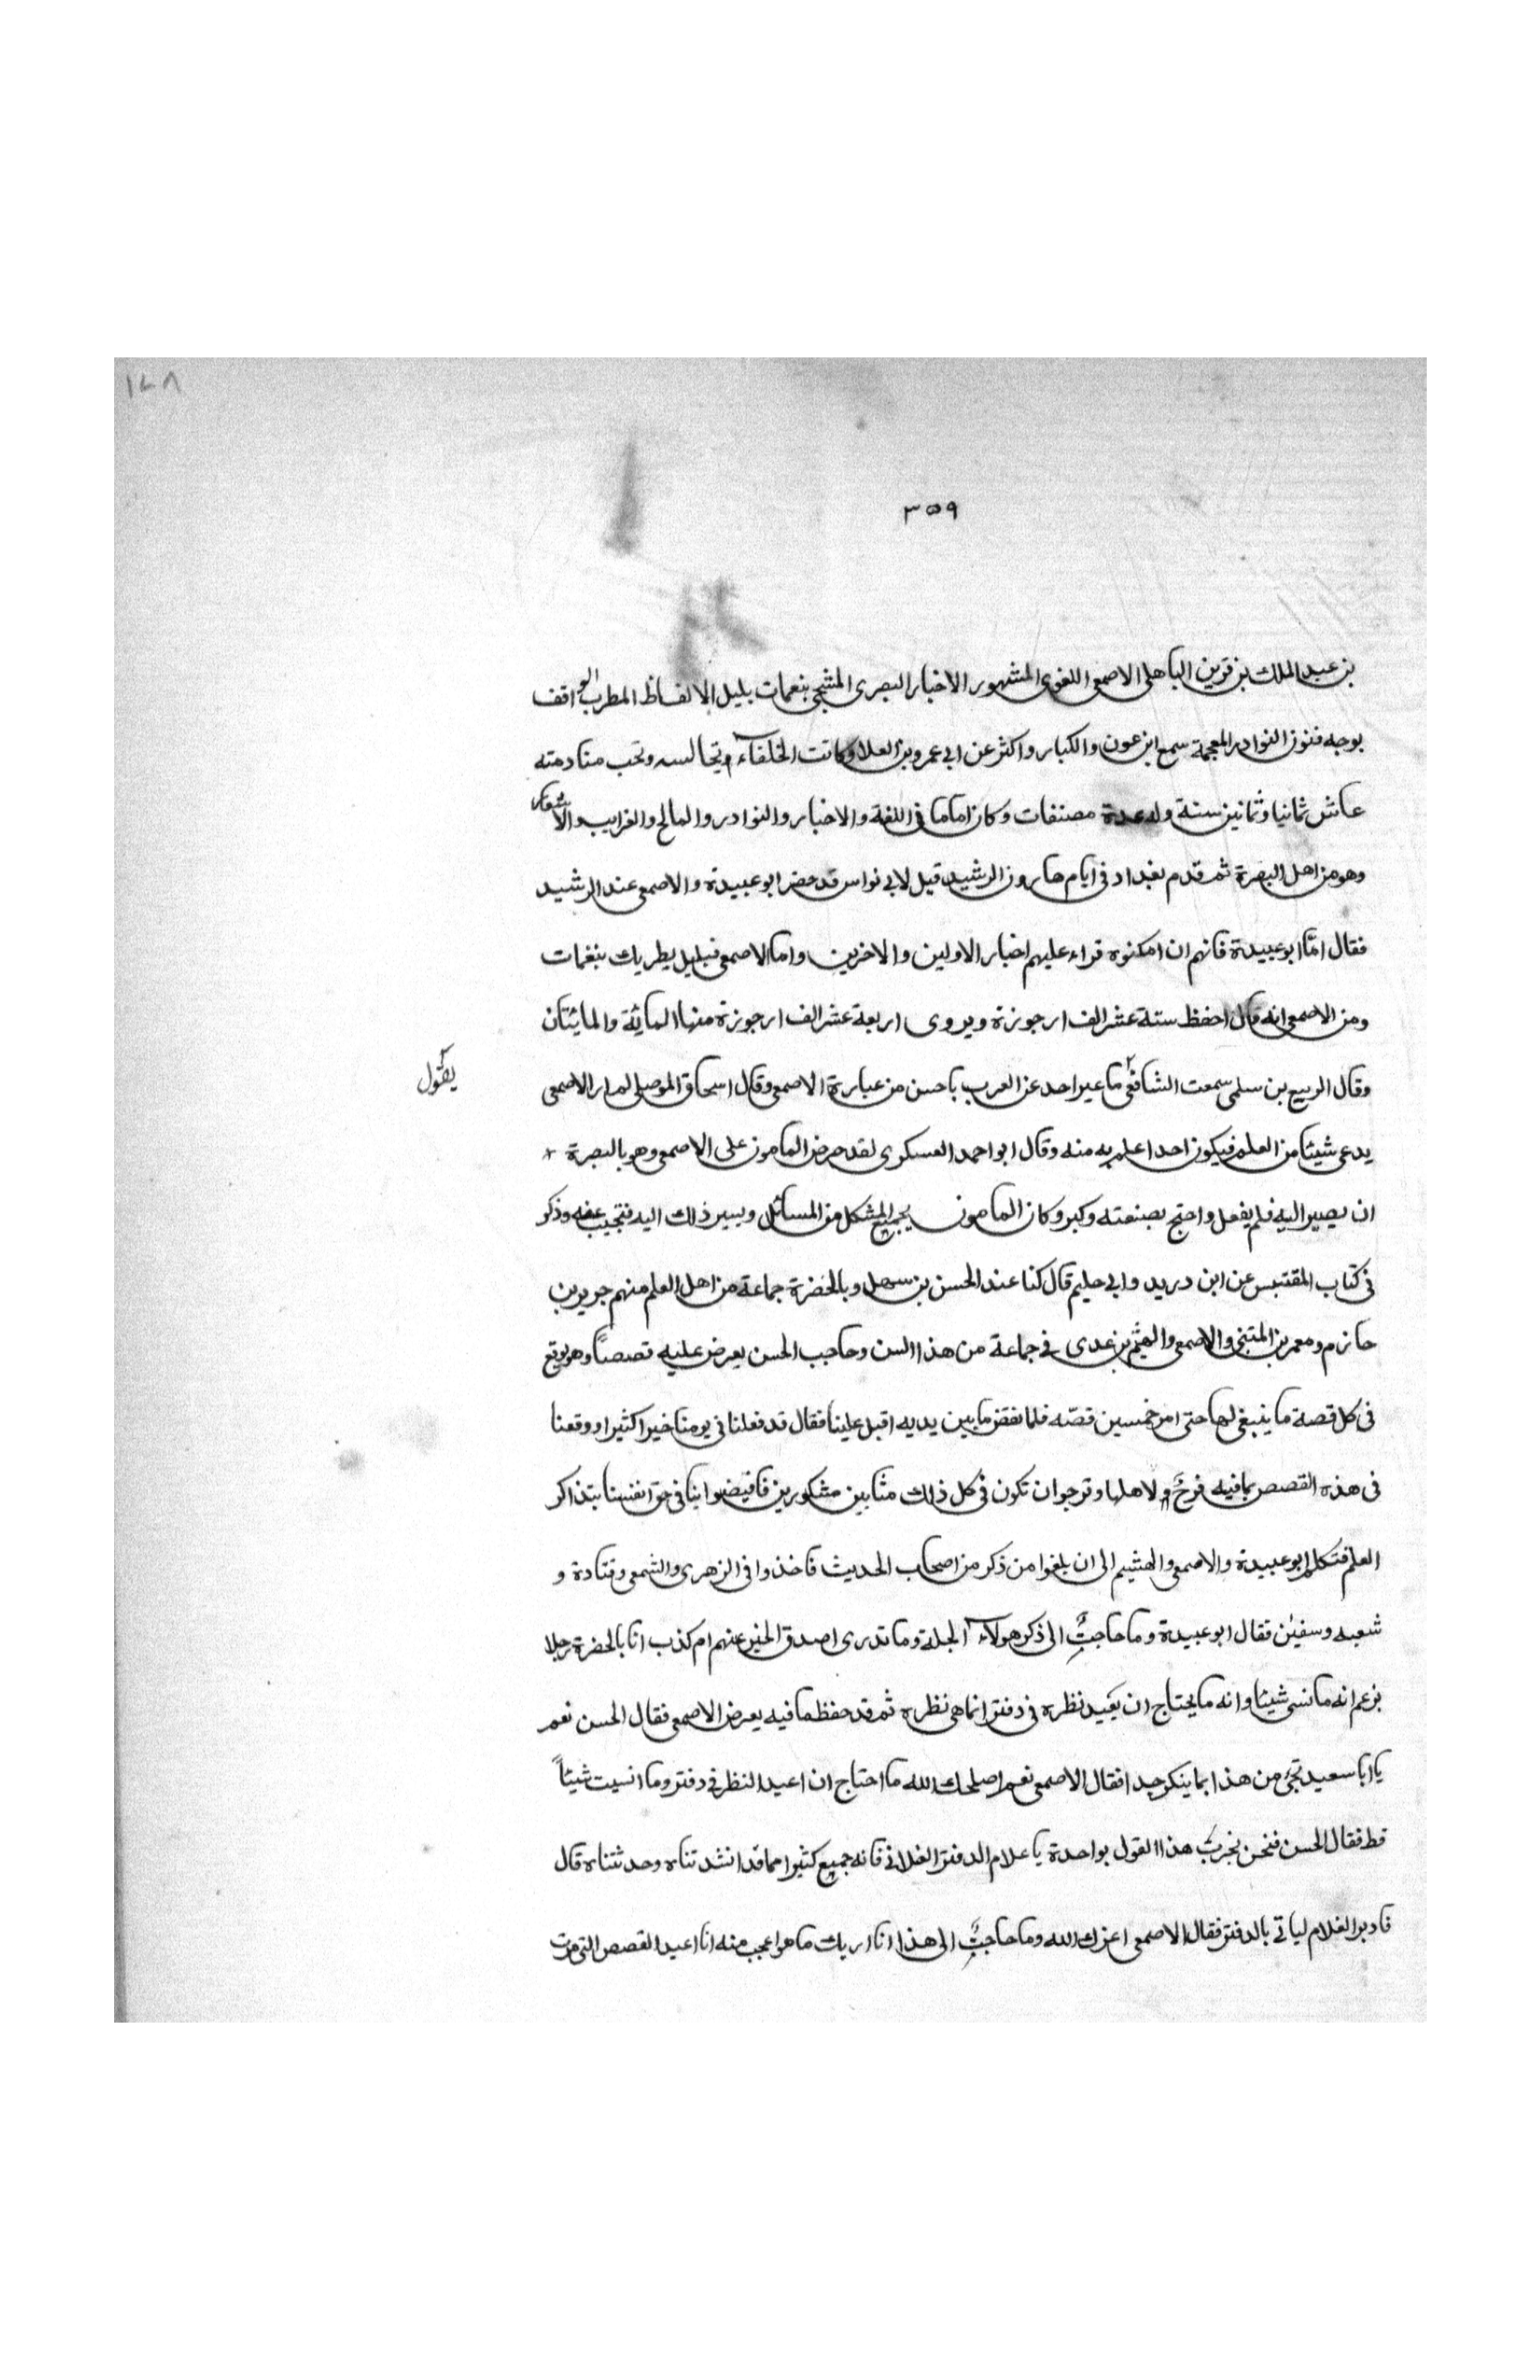 ١٤٨
٣٥٩
بن عبد الملك بن قرين الباهلى الاصمعى اللغوى المشهور الاخبار البصرى المشجى بنعمات بليل الالفاظ المطرب الواقف
بوجه فنون النوادر المعجمة سمع ابن عون والكبار واكثر عن ابى عمرو بن العلا وكانت الخلفاء تجالسه وتحب منادمته
عاش ثمانيا وثمانين سنة وله عدة مصنفات وكان اماما فى اللغة والاخبار والنوادر والمالح والغرايب والاشعار
وهو من اهل البصرة ثم قدم بغداد فى ايام هارون الرشيد قيل لابى نواس قد حضر ابو عبيدة والاصمعى عند الرشيد
فقال امّا ابو عبيدة فانهم ان امكنوه قراء عليهم اخبار الاولين والاخرين واما الاصمعى فبليل يطربك بنغمات
ومن الاصمعى انه قال احفظ ستة عشر الف ارجوزة ويروى اربعة عشر الف ارجوزة منها المائة والمائتان
وقال الربيع بن سلمى سمعت الشافعى ما عبر احد عن العرب باحسن من عبارة الاصمعى وقال اسحاق الموصلى لم ار الاصمعى
يقول
يدعى شيئا من العلم فيكون احدا علم به منه وقال ابو احمد العسكرى لقد حرض المامون على الاصمعى وهو بالبصرة
ان يصير اليه فلم يفعل واحتج بصنعته وكبر وكان المامون يجميع المشكل من المسائل ويسير ذلك اليه فتجيب عفه وذكر
فى كتاب المقتبس عن ابن دريد وابى حليم قال كنا عند الحسن بن سهل وبالحضرة جماعة من اهل العلم منهم جرير بن
حازم ومعمر بن المتنى والاصمعى والهيثم بن عدى فى جماعة من هذا السن وحاجب الحسن يعرض عليه قصصاً وهو يوقع
فى كل قصة ما ينبغى لها حتى امر خمسين قصّه فلما نفض ما بين يديه اقبل علينا فقال قد فعلنا فى يومنا خيرا كثيرا ووقعنا
فى هذه القصص بما فيه فرح ولاهلها ونرجوان تكون فى كل ذلك مثابين مشكورين فافيضوا بنا فى حق انفسنا بتذاكر
العلم فتكلم ابو عبيدة والاصمعى والهشيم الى ان بلغوا من ذكر من اصحاب الحديث فاخذوا فى الزهرى والشعمى وقتادة و
شعبه وسفين فقال ابو عبيدة وما حاجتٌ الى ذكر هولآء الجلة وما تدرى اصدق الخبر عنهم ام كذب انا بالحضرة رجلا
يزعم انه ما نسى شيئا وانه ما يحتاج ان يعيد نظره فى دفتر انما هى نظرة ثم قد حفظ ما فيه يعرض الاصمعى فقال الحسن نعم
يا ابا سعيد تجئ من هذا بما ينكر جدا فقال الاصمعى نعم اصلحك الله ما احتاج ان اعيد النظر فى دفتر وما انسيت شيئاً
قط فقال الحسن فنحن نجرب هذا القول بواحدة يا علام الدفتر الفلانى فانه جميع كثيرا مما قد انشدتناه وحدثتناه قال
فادبر الغلام لياتى بالدفتر فقال الاصمعى اعزك الله وما حاجتٌ الى هذا انا اريك ما هو اعجب منه انا اعيد القصص التى مرت